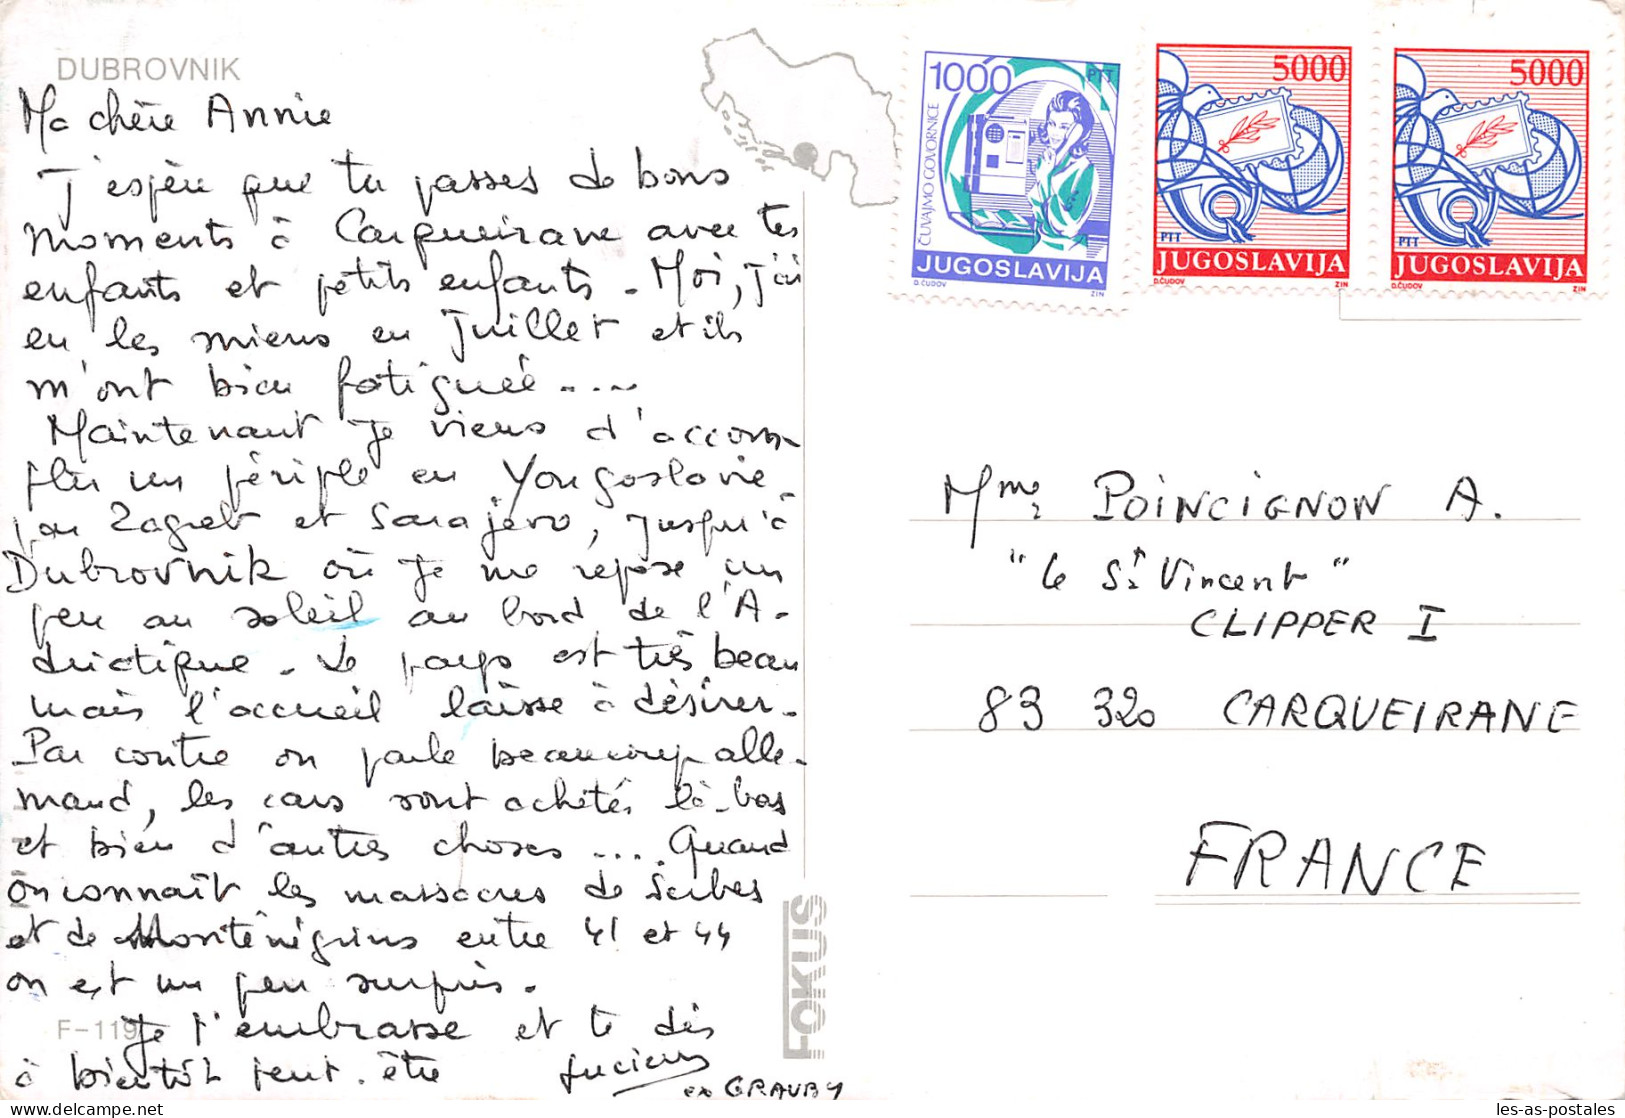 DUBROVNIK
Ma chère Annie
J'espère que tu passes de bons
moments à Carqueirane avec tes
enfants et petits enfants - Moi, j'ai
eu les miens en Juillet et ils
m'ont bien fatiguée ....
Maintenant je viens d'accom-
plir un périple en Yougoslavie
par Zagreb et Sarajevo, jusqu'à
Dubrovnik où je me repose un
peu au soleil au bord de l'A-
driatique - Le pays est très beau
mais l'accueil laisse à désirer -
Par contre on parle beaucoup alle-
mand, les cars sont achetés là-bas
et bien d'autres choses .... Quand
on connaît les massacres de Serbes
et de Monténégrins entre 41 et 44
on est un peu surpris.
Je t'embrasse et te dis
à bientôt peut-être
F-119
ex GRAUBY
FOKUS
1000
PTT
ČUVAJMO GOVORNICE
JUGOSLAVIJA
D.ČUDOV ZIN
5000
PTT
JUGOSLAVIJA
D.ČUDOV ZIN
5000
PTT
JUGOSLAVIJA
D.ČUDOV ZIN
Mme POINCIGNON A.
"Le St Vincent"
CLIPPER I
83 320 CARQUEIRANE
FRANCE
les-as-postales